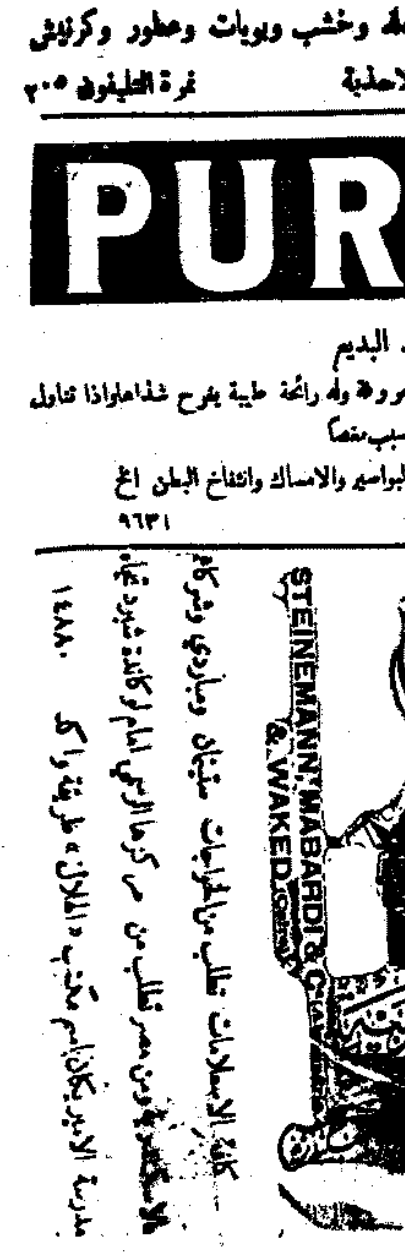 وخشب وبويات وعطور وكرنيش
نمرة التليفون ٣٠٥
PUR
البديع
وله رائحة طيبة يفوح شذاها واذا تناول
سبب مغصا
البواسير والامساك وانتفاخ البطن الخ
٩٦٣١
STEINEMANN, MABARDI & C
& WAKED
كافة الاستعلامات تطلب من الخواجات ستينمان ومباردي وشركاه
ومن مصر تطلب من مركزها الرئيسي امام لوكاندة شبرد
مدرسة الاميريكان باسم مكتب «الهلال» طريقة واكد ١٤٨٨٠